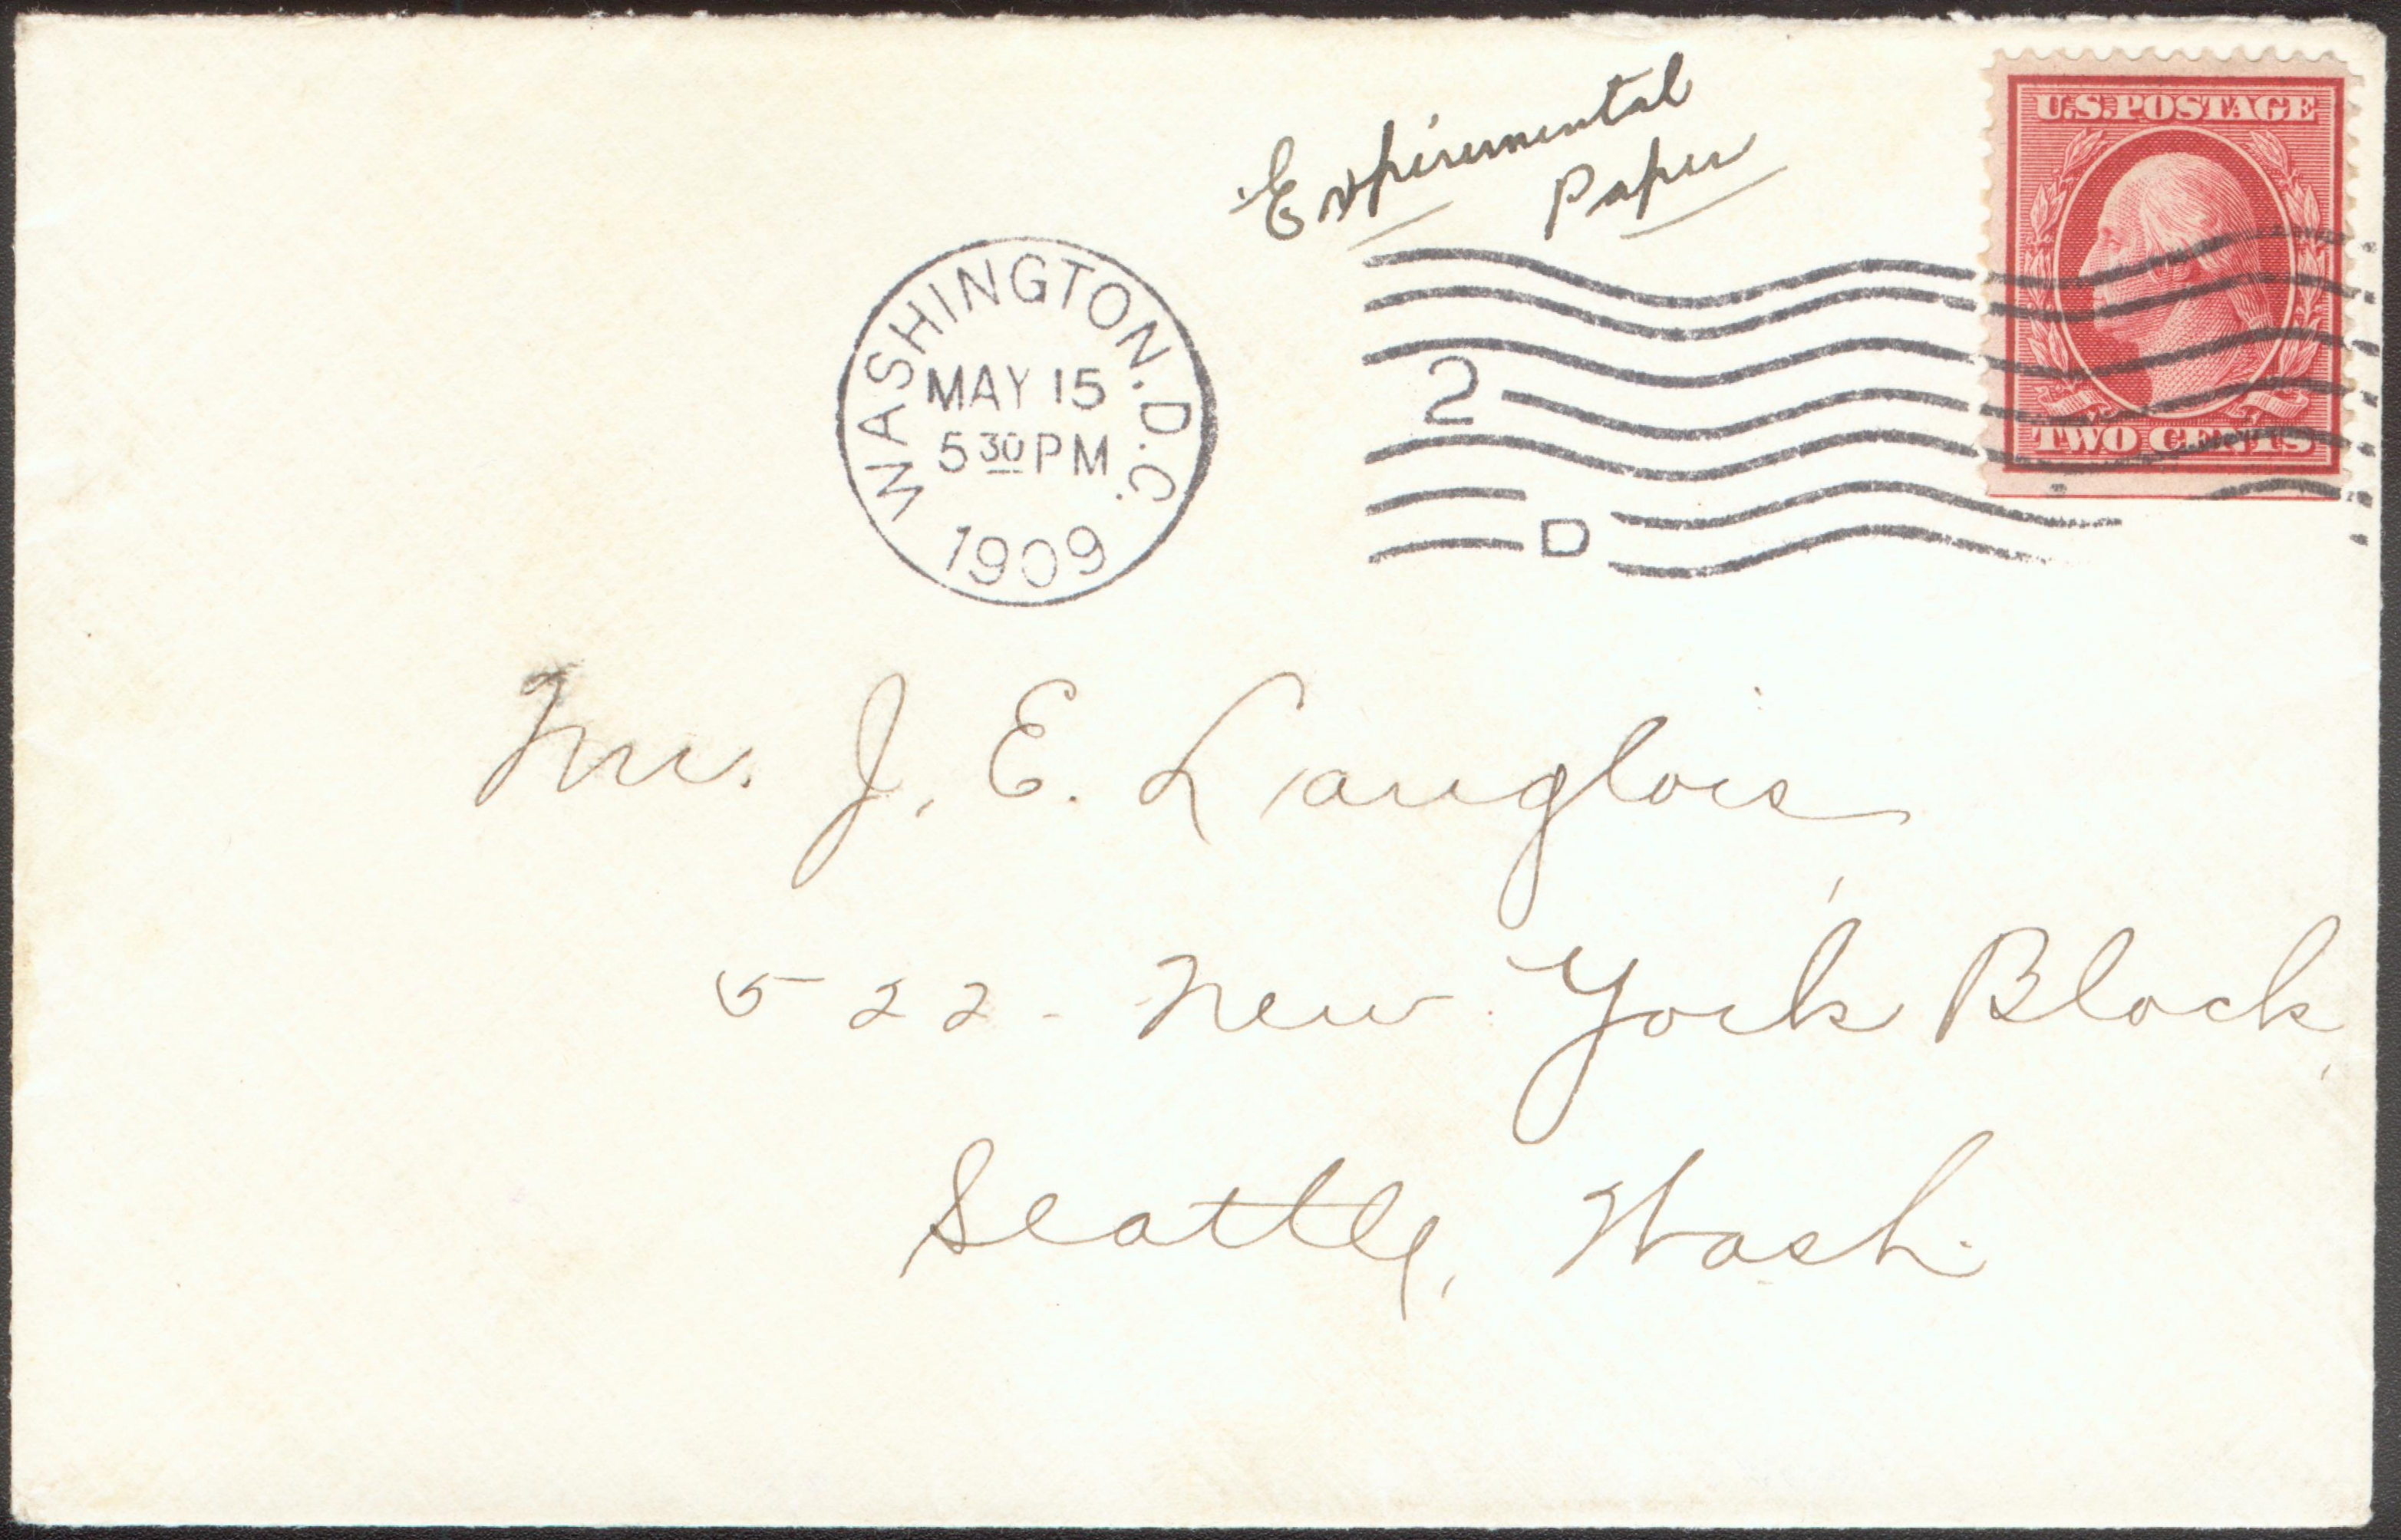 Expiremental
Paper
U.S. POSTAGE
TWO CENTS
WASHINGTON. D.C.
MAY 15
5 30 PM
1909
2
D
Mr. J. E. Langlois
522 - New York Block,
Seattle, Wash.